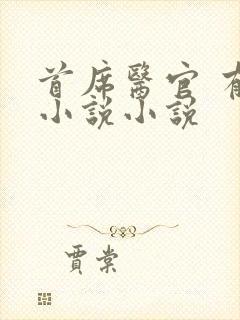 首席醫官 有
小說小說
賈棠